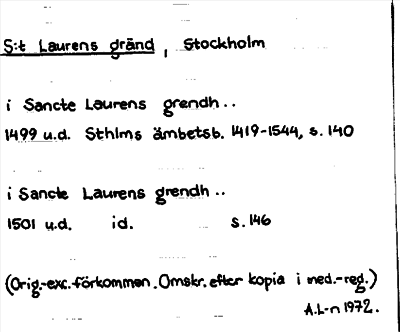 S:t Laurens gränd, Stockholm
i Sancte Laurens grendh..
1499 u.d. Sthlms ämbetsb. 1419-1544, s. 140
i Sancte Laurens grendh..
1501 u.d. id. s. 146
(Orig.-exc. förkommen. Omskr. efter kopia i med.-reg.)
A.L-n 1972.